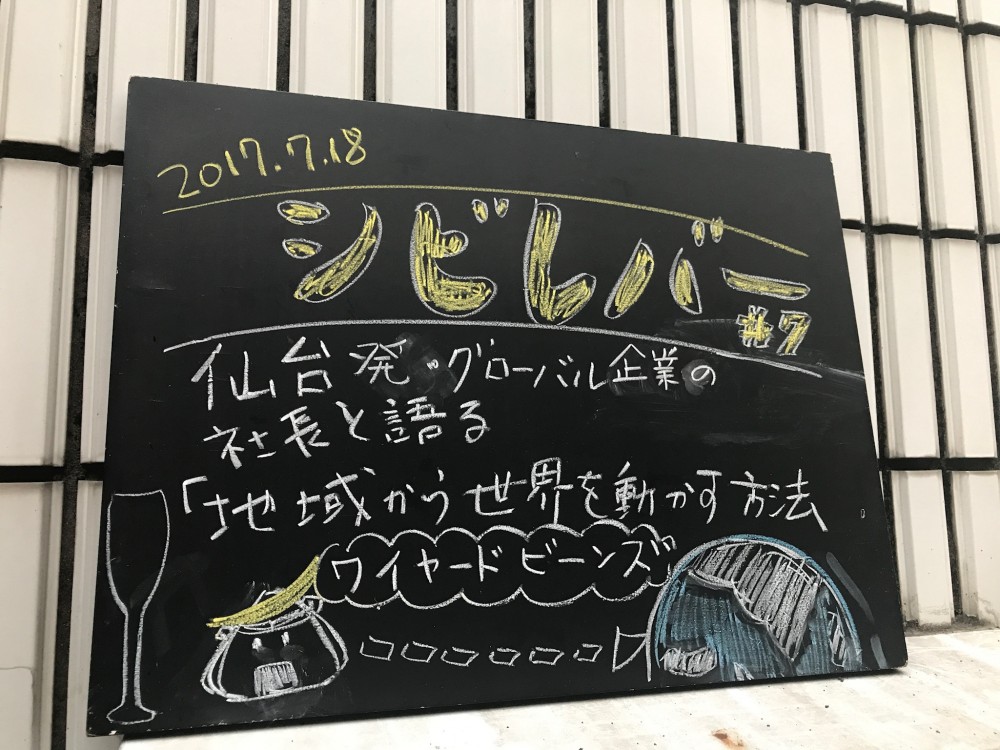 2017.7.18
シビレバー
#7
仙台発グローバル企業の
社長と語る
「地域から世界を動かす方法
ワイヤードビーンズ